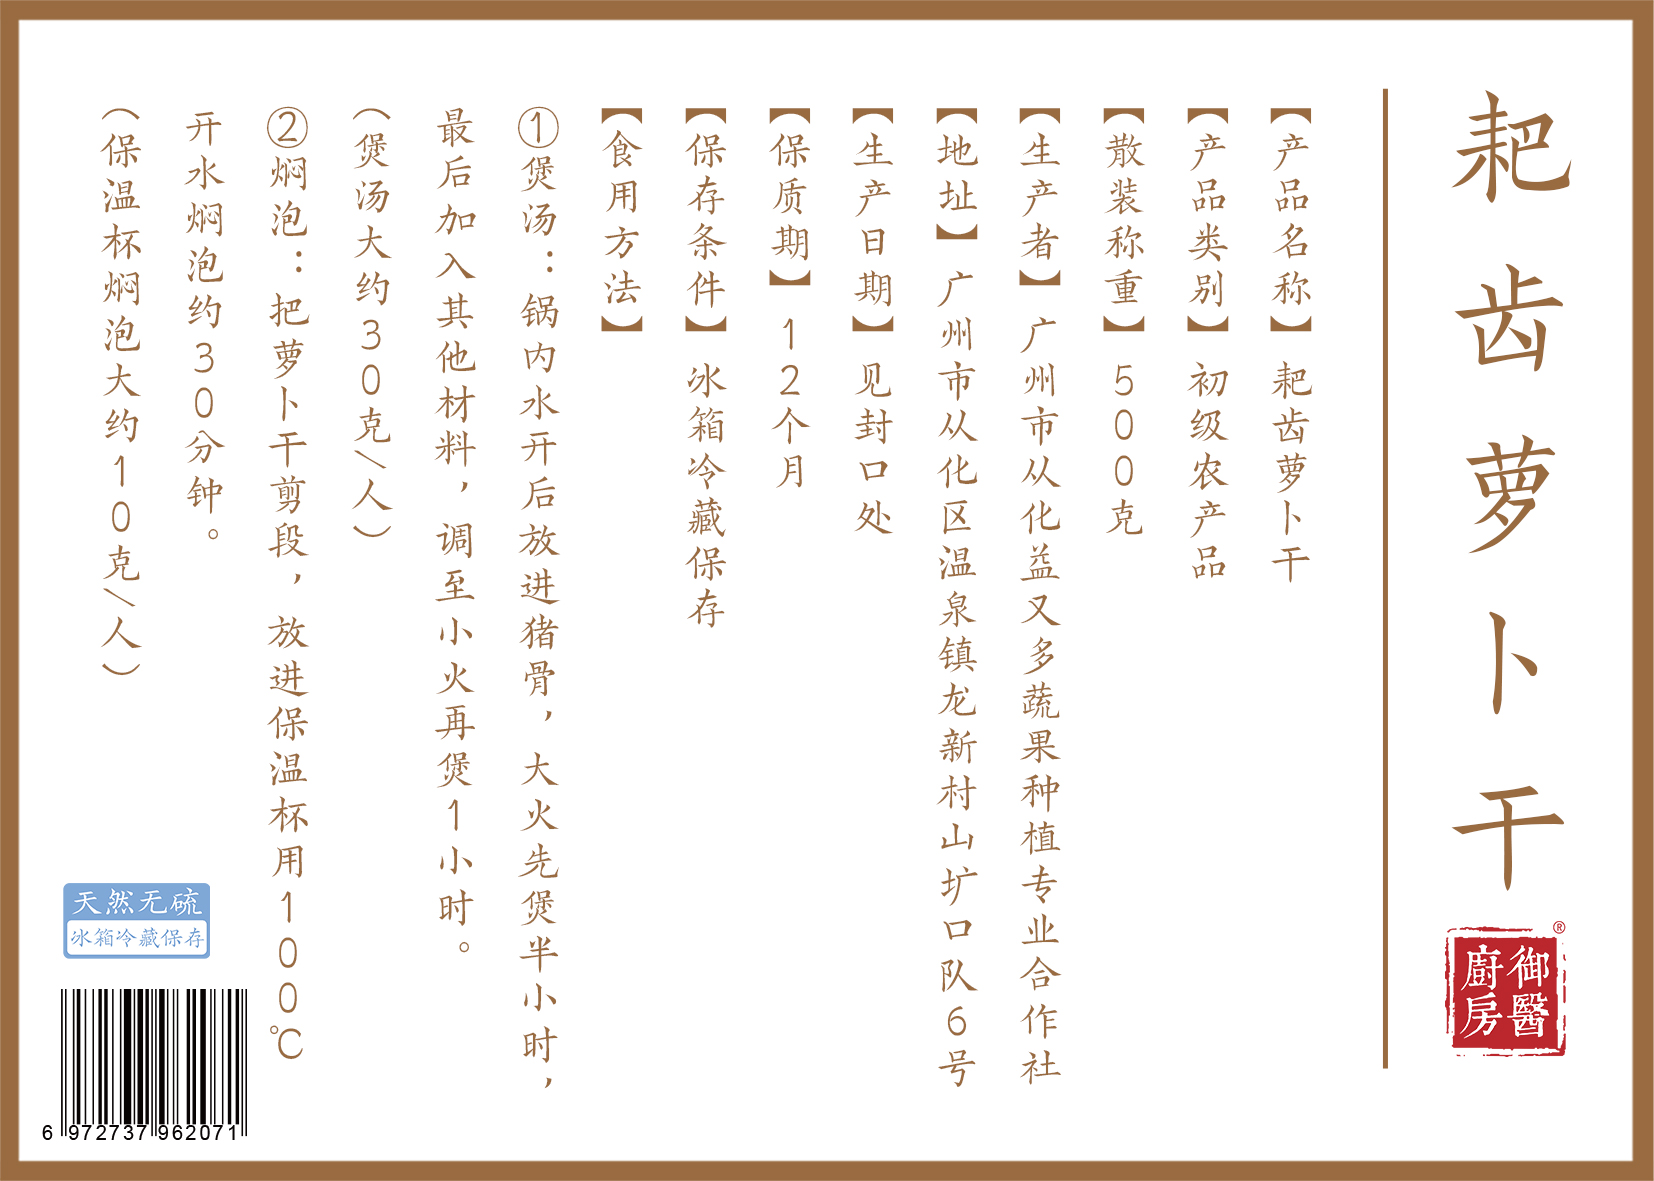 耙齿萝卜干
御醫
廚房
®
【产品名称】耙齿萝卜干
【产品类别】初级农产品
【散装称重】500克
【生产者】广州市从化益又多蔬果种植专业合作社
【地址】广州市从化区温泉镇龙新村山圹口队6号
【生产日期】见封口处
【保质期】12个月
【保存条件】冰箱冷藏保存
【食用方法】
①煲汤：锅内水开后放进猪骨，大火先煲半小时，
最后加入其他材料，调至小火再煲1小时。
(煲汤大约30克/人)
②焖泡：把萝卜干剪段，放进保温杯用100℃
开水焖泡约30分钟。
(保温杯焖泡大约10克/人)
天然无硫
冰箱冷藏保存
6 972737 962071